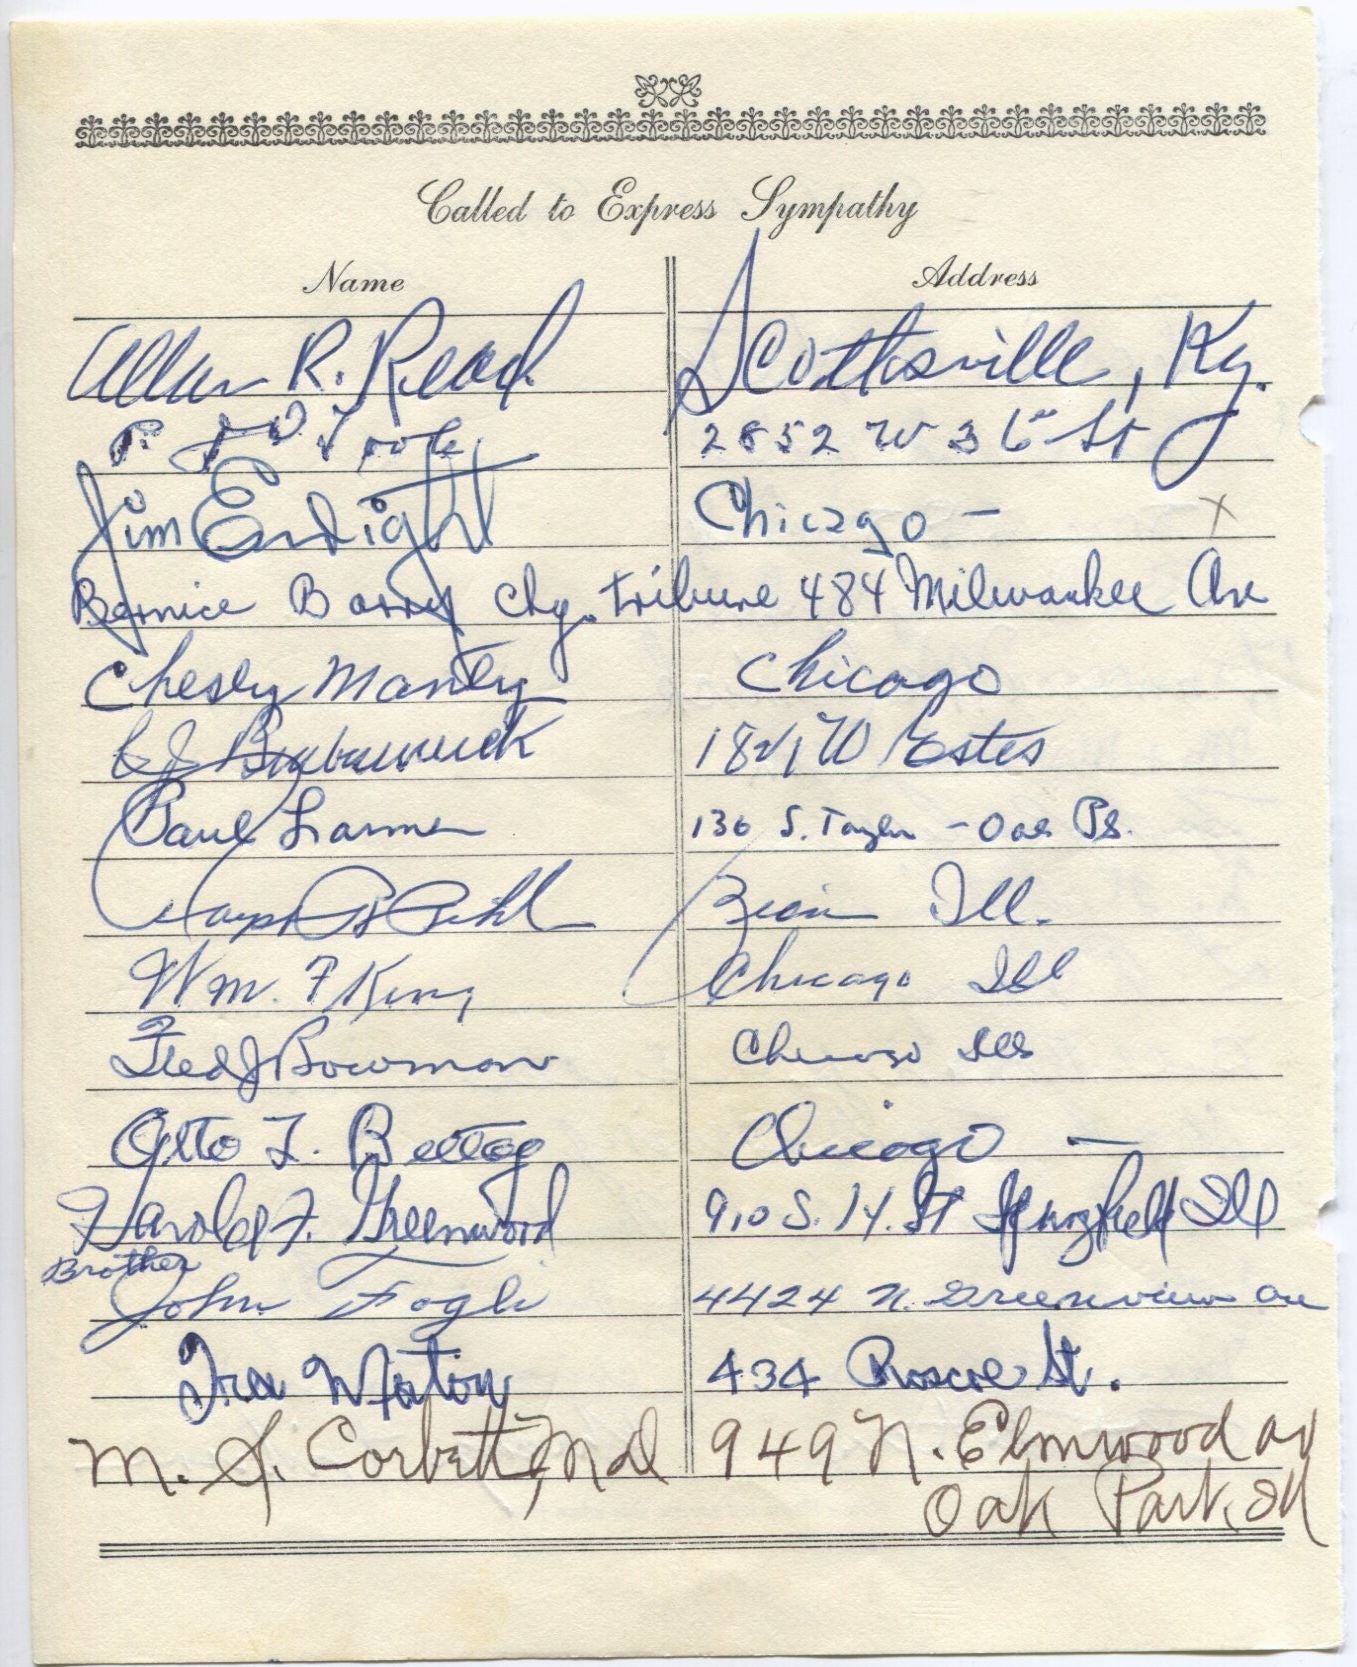 Called to Express Sympathy
Name Address
Allan R. Read Scottsville, Ky.
P. J. O'Toole 2852 W 36 St
Jim Enright Chicago - x
Bernice Barry Chg. Tribune 484 Milwaukee Ave
Chesly Manly Chicago
1821 W Estes
Paul 130 S. Taylor - Oak Pk.
Zion Ill.
Wm. F King Chicago Ill
Fred J Bowman Chicago Ills
Otto T. Chicago -
Harold F. Greenwood 910 S. 14. St Springfield Ill
Brother
John Fogli 4424 N. Greenview Ave
Ira 434 Roscoe St.
M. J. Corbett, Md 949 N. Elmwood av
Oak Park, Ill